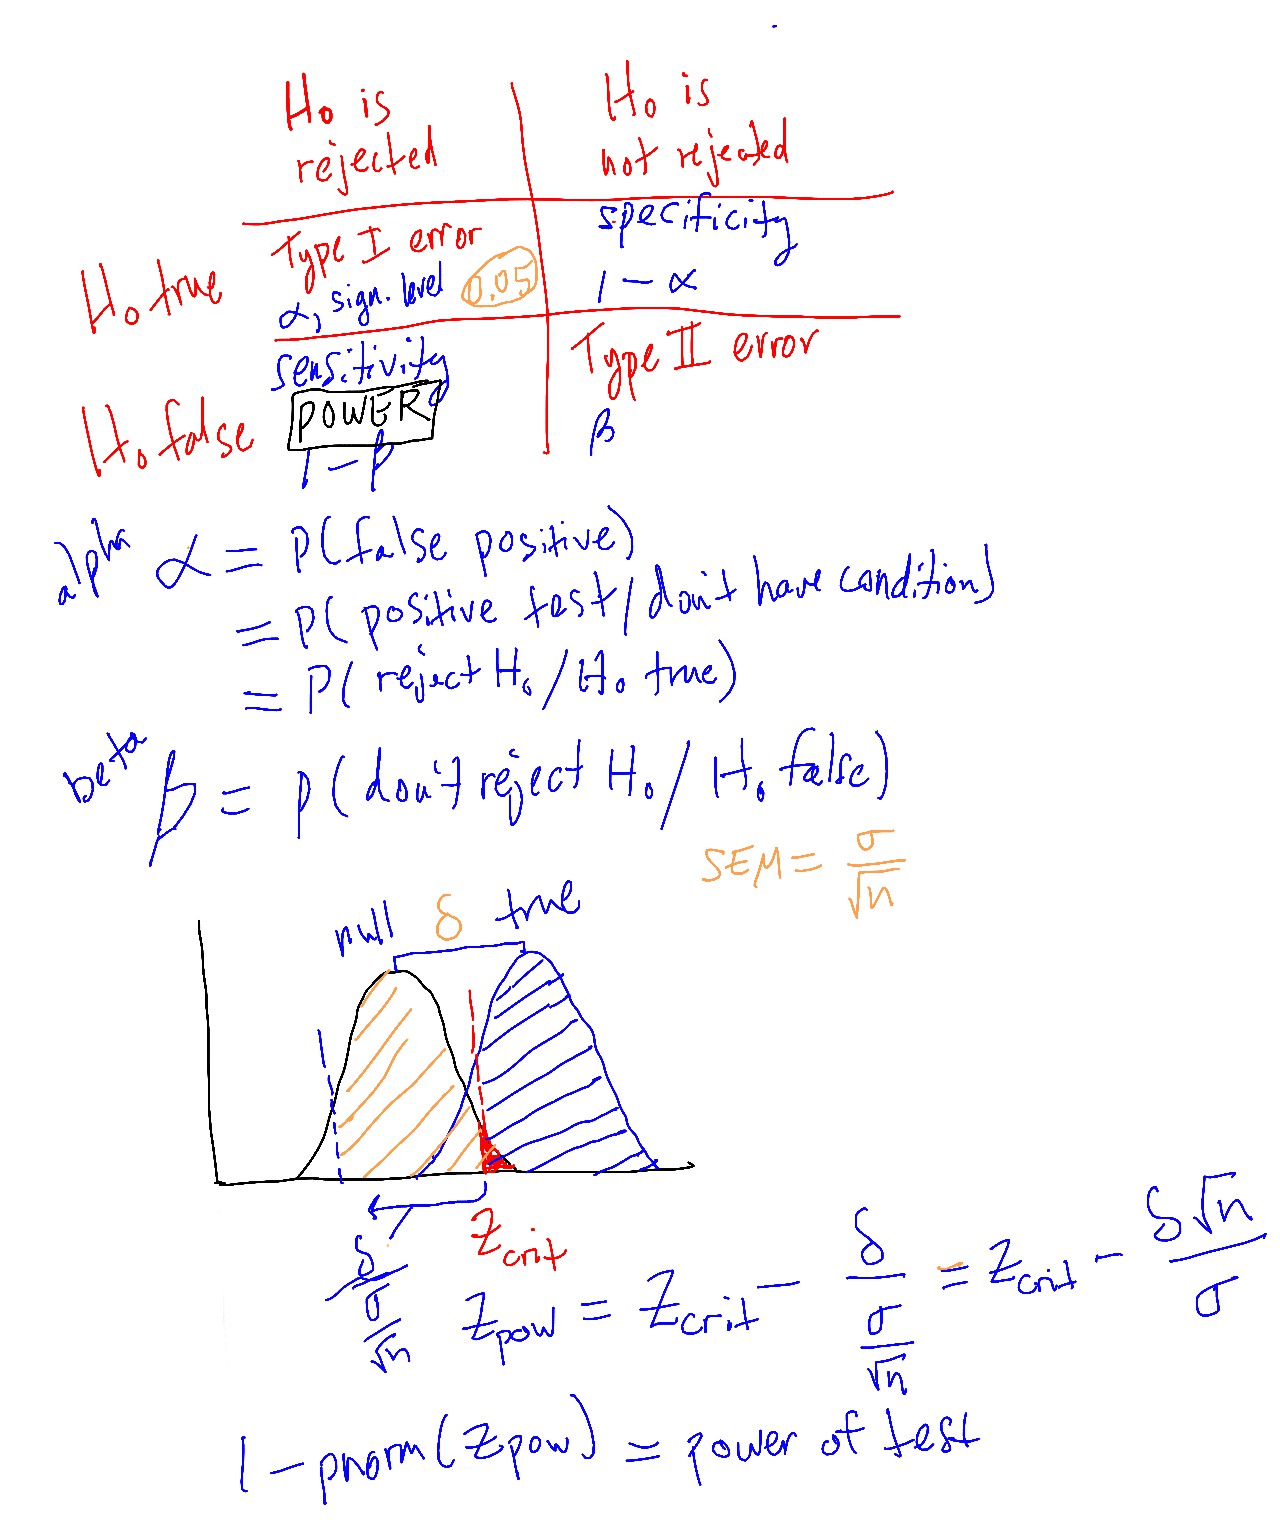 H₀ is
rejected
H₀ is
not rejected
H₀ true
Type I error
α, sign. level
0.05
specificity
1 - α
H₀ false
sensitivity
POWER
1 - β
Type II error
β
alpha α = P(false positive)
= P(positive test/don't have condition)
= P(reject H₀/H₀ true)
beta β = P(don't reject H₀/H₀ false)
SEM = σ/√n
null δ true
Zcrit
δ/(σ/√n)
Zpow = Zcrit - δ/(σ/√n) = Zcrit - δ√n/σ
1 - pnorm(Zpow) = power of test